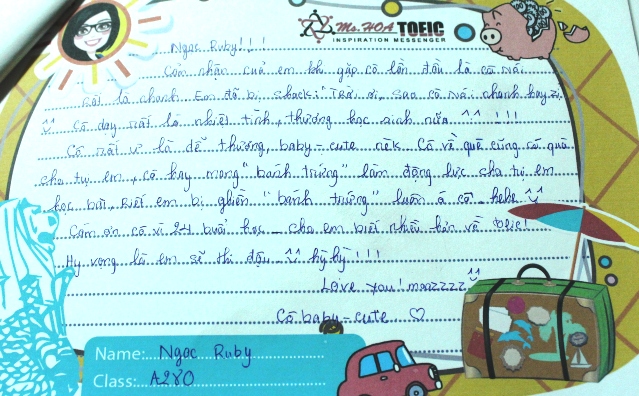 Ms. HOA TOEIC
INSPIRATION MESSENGER
Ngọc Ruby!!!
Cảm nhận của em khi gặp cô lần đầu là cô nói
rất là chanh. Em đã bị shock: "Trời ơi, sao cô nói chanh
Cô dạy rất là nhiệt tình, thương học sinh nữa ^^ !!!
Cô rất vi là dễ thương, baby - cute nek. Cô về quê cũng có quà
cho tụi em, cô hay mang "bánh tráng" làm động lực cho tụi em
học bài, riết em bị ghiền "bánh tráng" luôn á cô - hehe
Cảm ơn cô vì 24 buổi học - cho em biết nhiều hơn về toeic!
Hy vọng là em sẽ thi đậu ^^ hỳ hỳ!!!
Love you! moazzzz
Cô baby - cute ♡
Name: Ngọc Ruby
Class: A280